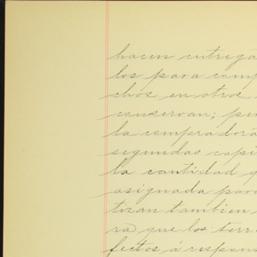 hacen entrega
los para comp
chos en otros
conservan; per
la compradora
segundas copi
la cantidad q
asignada para
tizan tambien
ra que los terr
fectos á respon